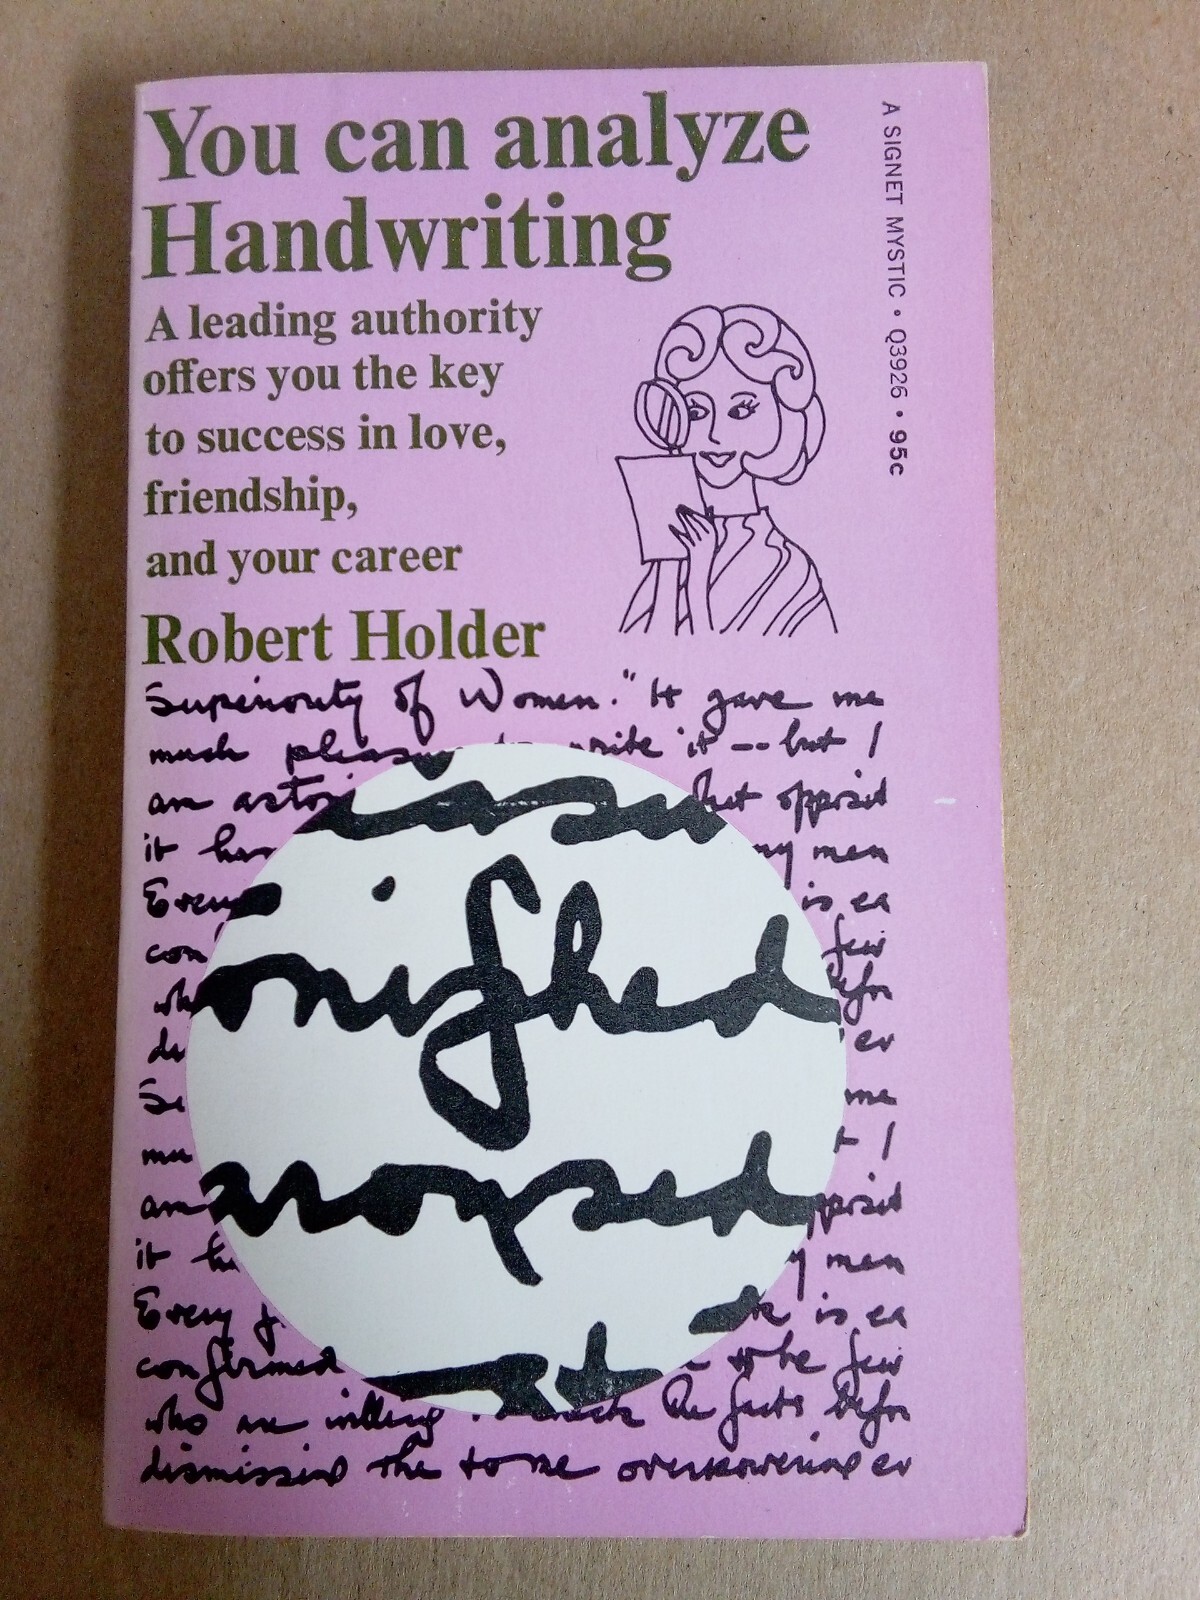 You can analyze
Handwriting
A leading authority
offers you the key
to success in love,
friendship,
and your career
Robert Holder
A SIGNET MYSTIC • Q3926 • 95c
Superiority of Women." It gave me
much pleasure to write it -- but I
am opposit
it my men
Every is ea
con few
befor
er
me
mu t I
am pposit
it y men
Every is ea
confirmed to be few
who are willing to check the facts befor
dismissing the to me overpowering ev
nished
aroused